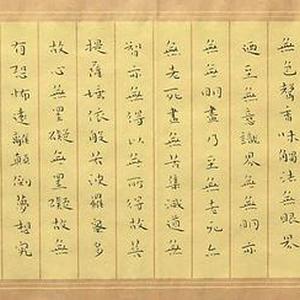 無色聲香味觸法無眼界
迺至無意識界無無明亦
無無明盡乃至無老死亦
無老死盡無苦集滅道無
智亦無得以無所得故菩
提薩埵依般若波羅蜜多
故心無罣礙無罣礙故無
有恐怖遠離顛倒夢想究